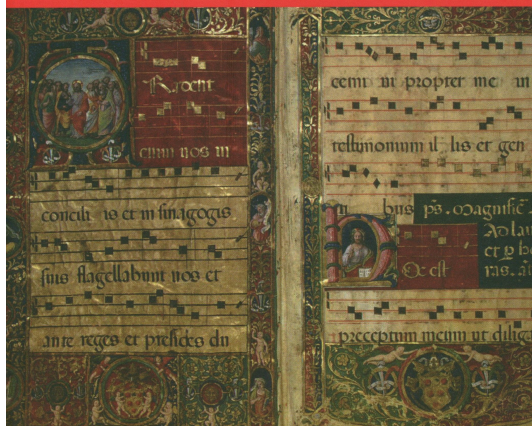 TRadent
enim uos in
concili is et in sinagogis
suis flagellabunt uos et
ante reges et presides du
cemi ni propter me in
testimonium il lis et gen
ti bus ps. Magnific̄
Ad lau
HOc est
preceptum meum ut diliga